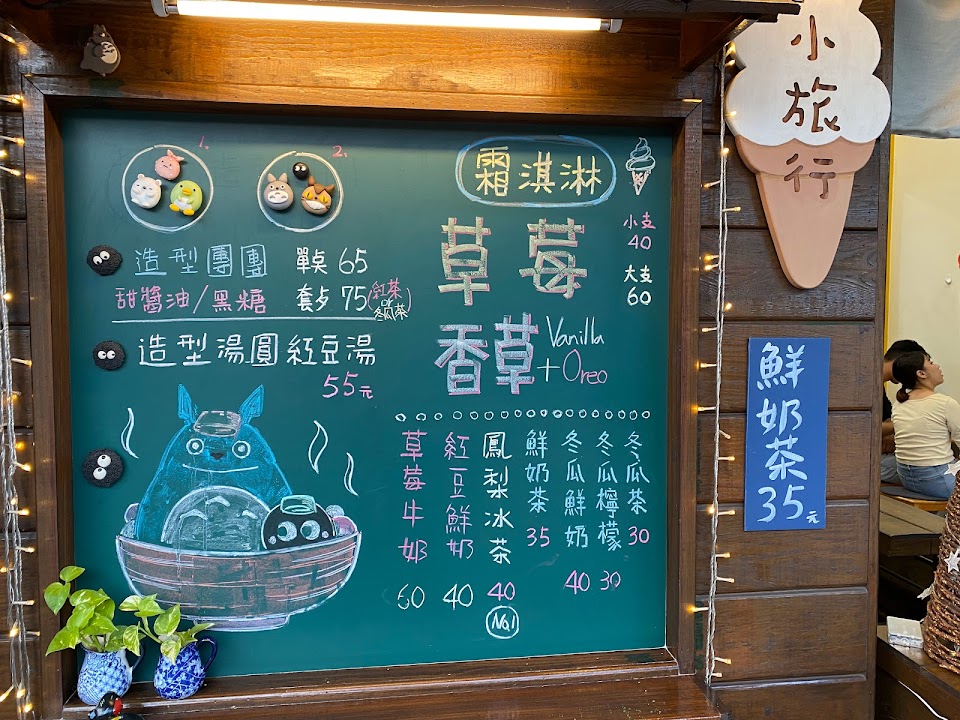 1.
2.
造型團團 單点 65
甜醬油/黑糖 套点 75(紅茶 or 冬瓜茶)
造型湯圓紅豆湯
55元
霜淇淋
草莓
小支
40
大支
60
香草
Vanilla
+Oreo
草莓牛奶 60
紅豆鮮奶 40
鳳梨冰茶 40
No.1
鮮奶茶 35
冬瓜鮮奶 40
冬瓜檸檬 30
冬瓜茶 30
小旅行
鮮奶茶35元